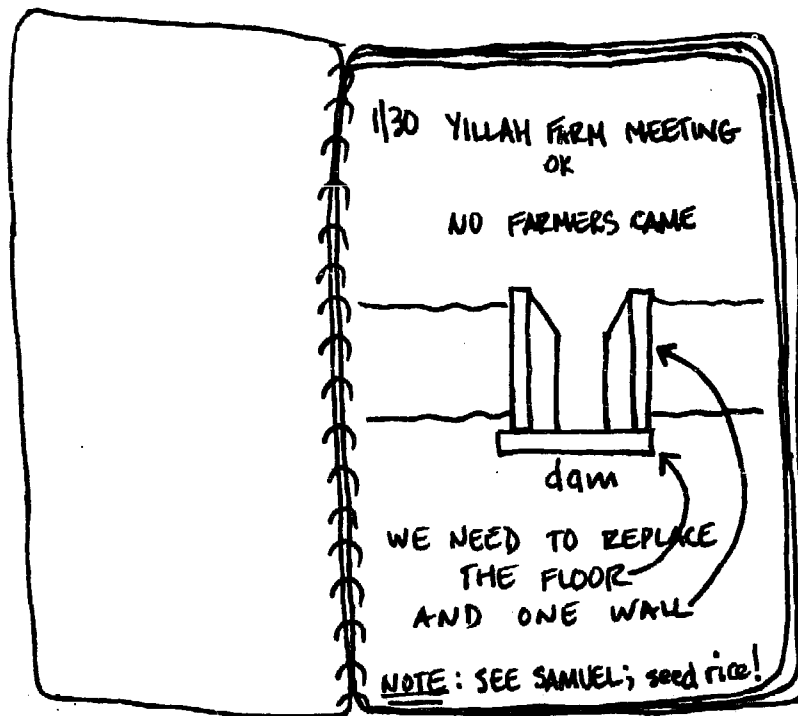 1/30 YILLAH FARM MEETING
OK
NO FARMERS CAME
dam
WE NEED TO REPLACE
THE FLOOR
AND ONE WALL
NOTE: SEE SAMUEL; seed rice!